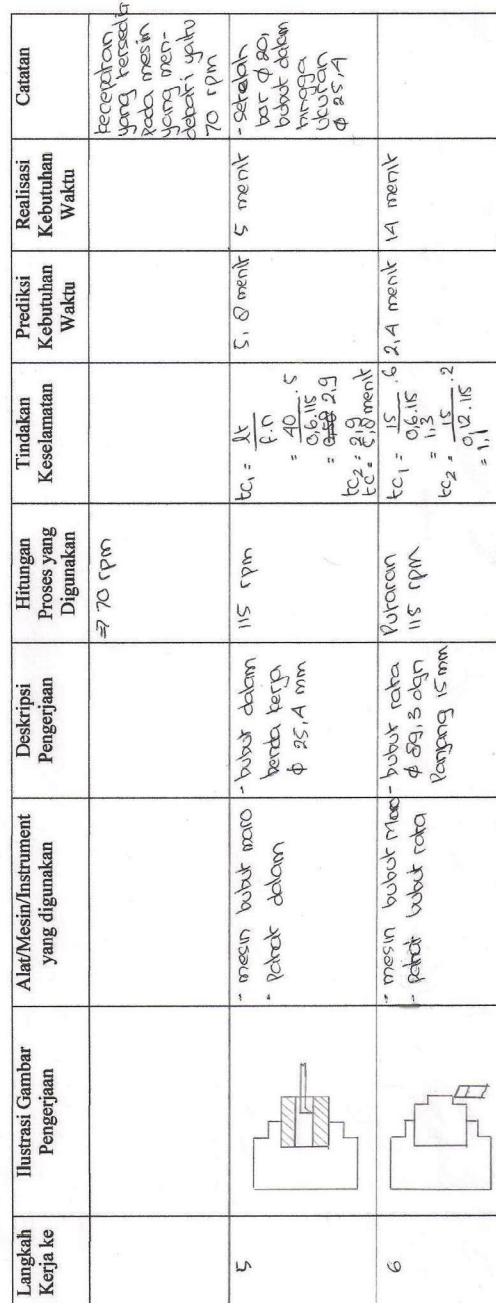 Langkah
Kerja ke
Ilustrasi Gambar
Pengerjaan
Alat/Mesin/Instrument
yang digunakan
Deskripsi
Pengerjaan
Hitungan
Proses yang
Digunakan
Tindakan
Keselamatan
Prediksi
Kebutuhan
Waktu
Realisasi
Kebutuhan
Waktu
Catatan
⇒ 70 rpm
kecepatan
yang tersedia
pada mesin
yang men-
dekati yaitu
70 rpm
5
- mesin bubut maro
- Pahat dalam
- bubut dalam
benda kerja
ϕ 25,4 mm
115 rpm
tc₁ = lt / f.n
= 40 / 0,6.115 . 5
= 2,9
tc₂ = 2,9
tc = 5,8 menit
5,8 menit
5 menit
- Setelah
bor ϕ 20,
bubut dalam
hingga
ukuran
ϕ 25,4
6
- mesin bubut Maro
- pahat bubut rata
- bubut rata
ϕ 59,3 dgn
Panjang 15 mm
Putaran
115 rpm
tc₁ = 15 / 0,6.115 . 6
= 1,3
tc₂ = 15 / 0,12.115 . 2
= 1,1
2,4 menit
14 menit